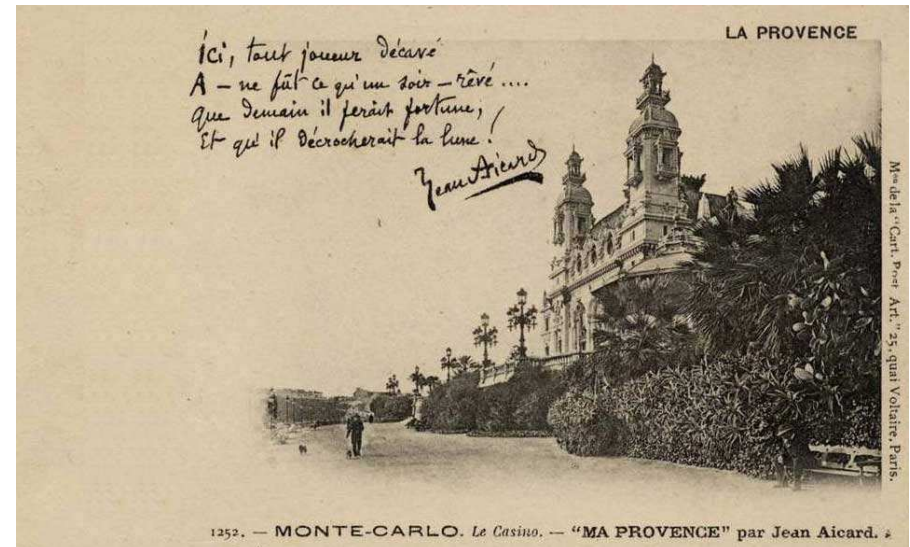 LA PROVENCE
Ici, tout joueur décavé
A – ne fût-ce qu'un soir – rêvé....
Que demain il ferait fortune,
Et qu'il décrocherait la lune !
Jean Aicard
Mon de la "Cart. Post. Art." 25, quai Voltaire, Paris.
1252. — MONTE-CARLO. Le Casino. — "MA PROVENCE" par Jean Aicard.